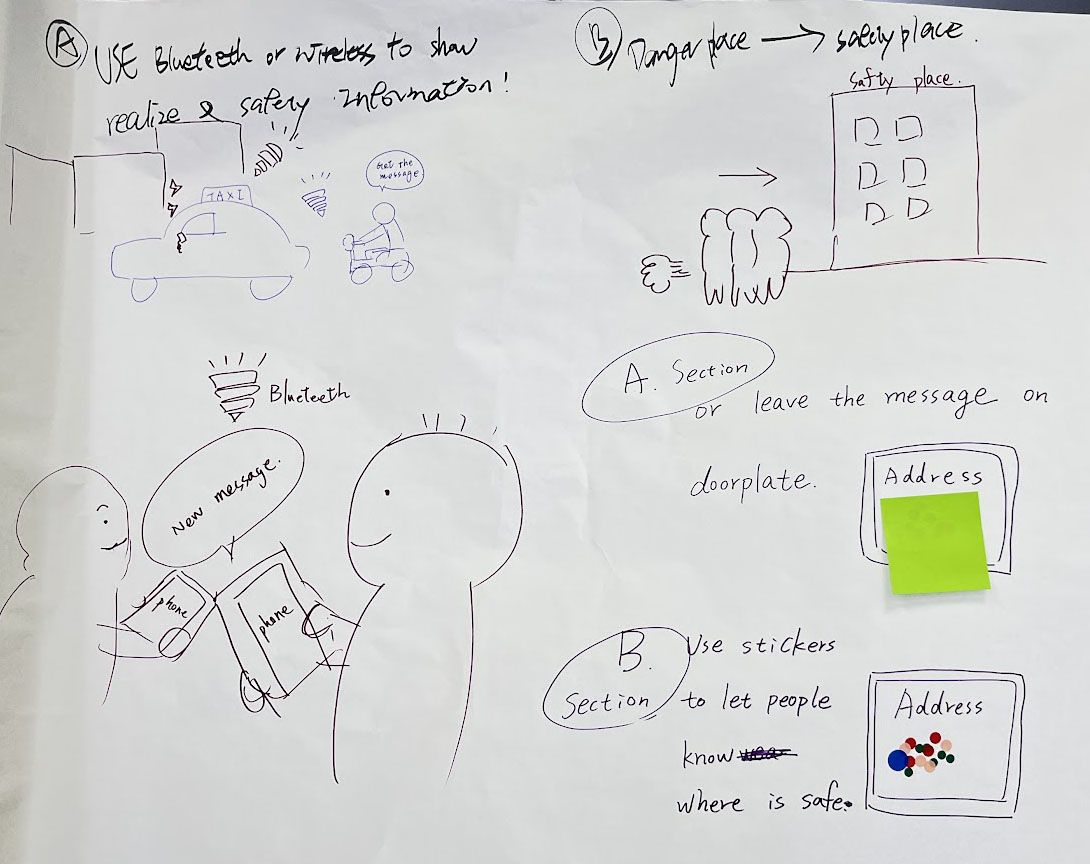 A
USE Blueteeth or wireless to show
realize & safety information!
TAXI
Get the
message
Blueteeth
New message.
phone
phone
B
Danger place → safety place.
Safty place.
A. Section
or leave the message on
doorplate.
Address
B.
Section
Use stickers
to let people
know
where is safe.
Address